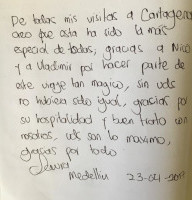 De todas mis visitas a Cartagena
creo que esta ha sido la más
especial de todas, gracias a Nico
y a Vladimir por hacer parte de
este viaje tan magico, sin uds
no hubiera sido igual, gracias por
su hospitalidad y buen trato con
nosotros, uds son lo maximo,
gracias por todo
Laura
Medellín 23-04-2017